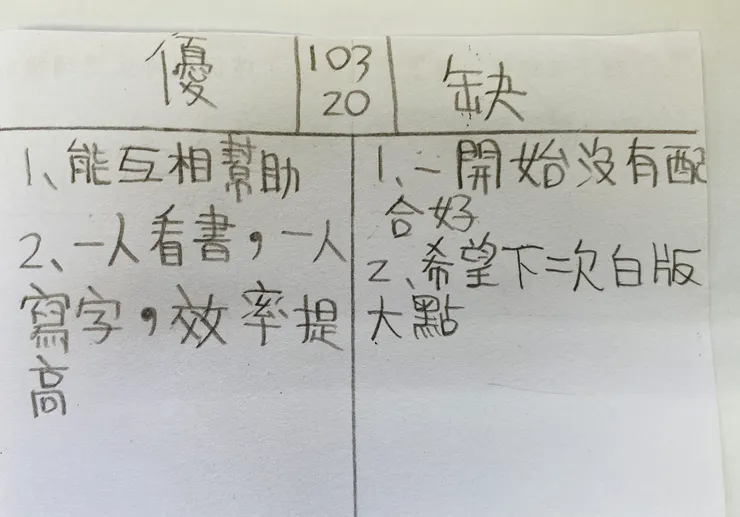 優
103
20
缺
1、能互相幫助
2、一人看書，一人
寫字，效率提
高
1、一開始沒有配
合好
2、希望下二次白版
大點